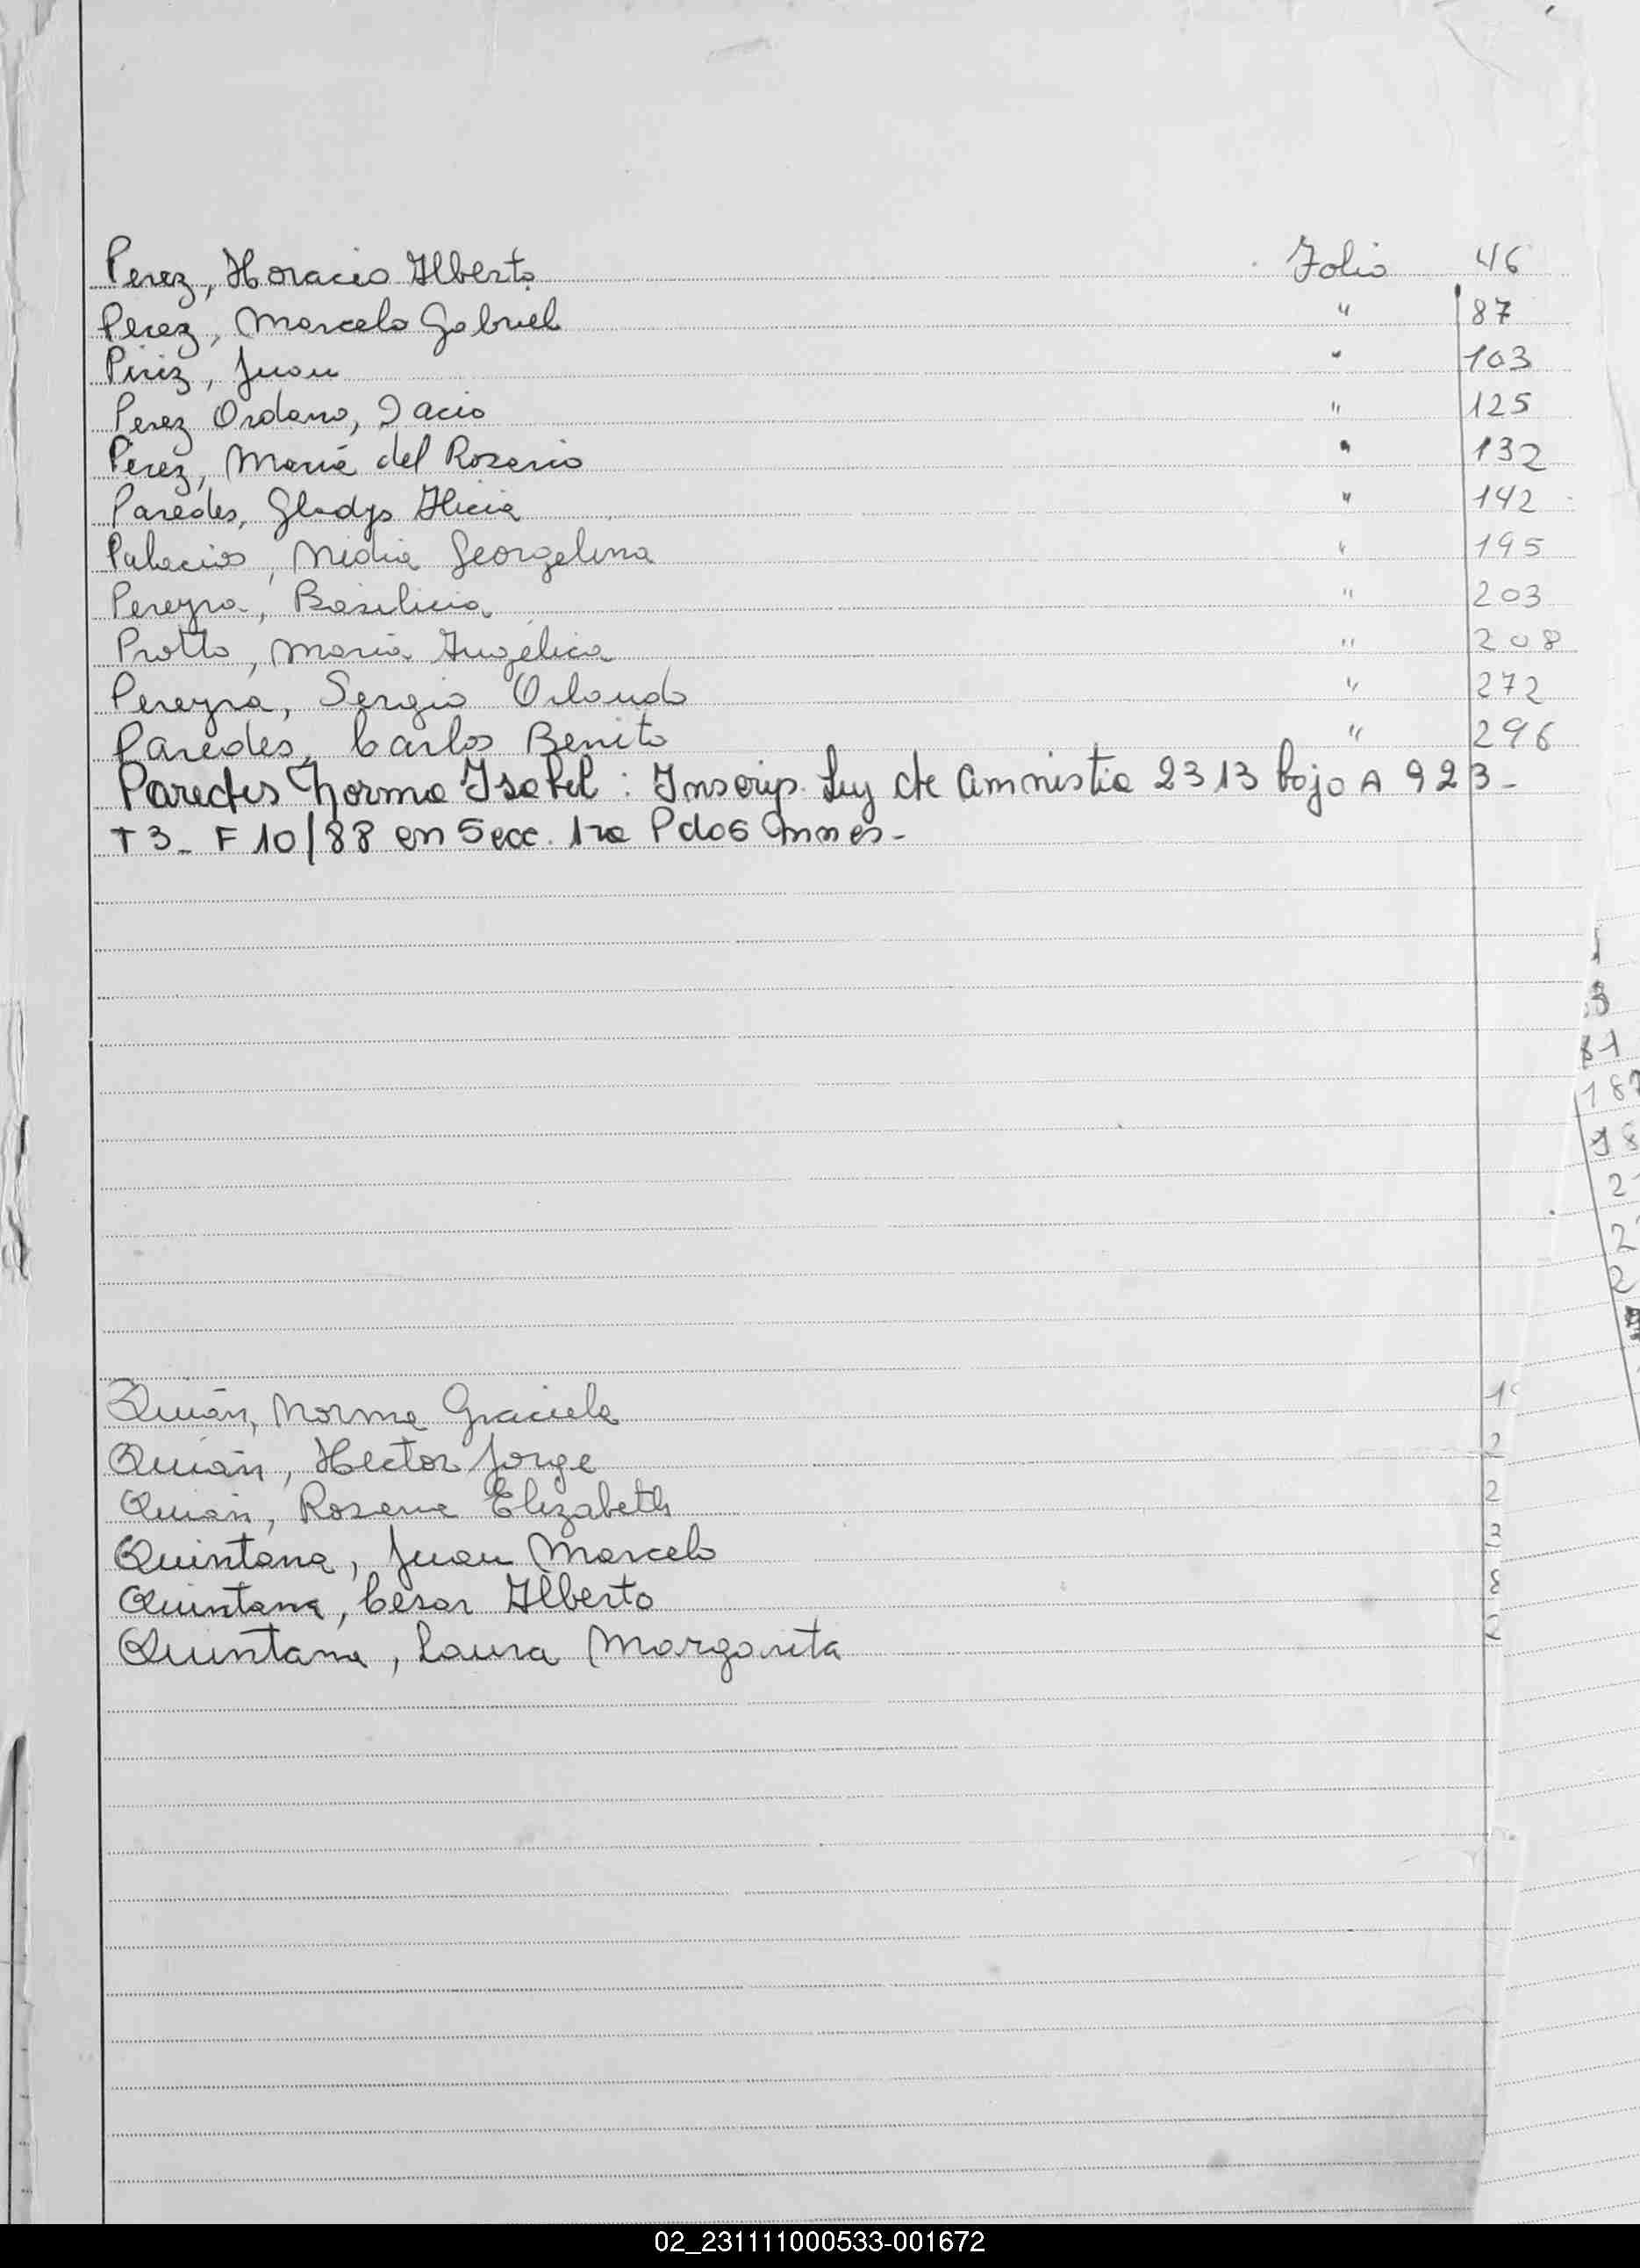 Perez, Horacio Alberto Folio 46
Perez, Marcelo Gabriel " 87
Piriz, Juan " 103
Perez Ordano, Dacio " 125
Pérez, María del Rosario " 132
Paredes, Gladys Alicia " 142
Palacios, Nidia Georgelina " 195
Pereyra, Basilicia " 203
Protto, María Angélica " 208
Pereyra, Sergio Orlando " 272
Paredes, Carlos Benito " 296
Paredes Norma Isabel: Inscrip. Ley de Amnistia 2313 bajo A 923-
T3- F 10/88 en Secc. 1ra Pdos
Quián, Norma Graciela
Quián, Hector Jorge 2
Quián, Rosana Elizabeth 2
Quintana, Juan Marcelo 3
Quintana, Cesar Alberto 8
Quintana, Laura Margarita 2
02_231111000533-001672